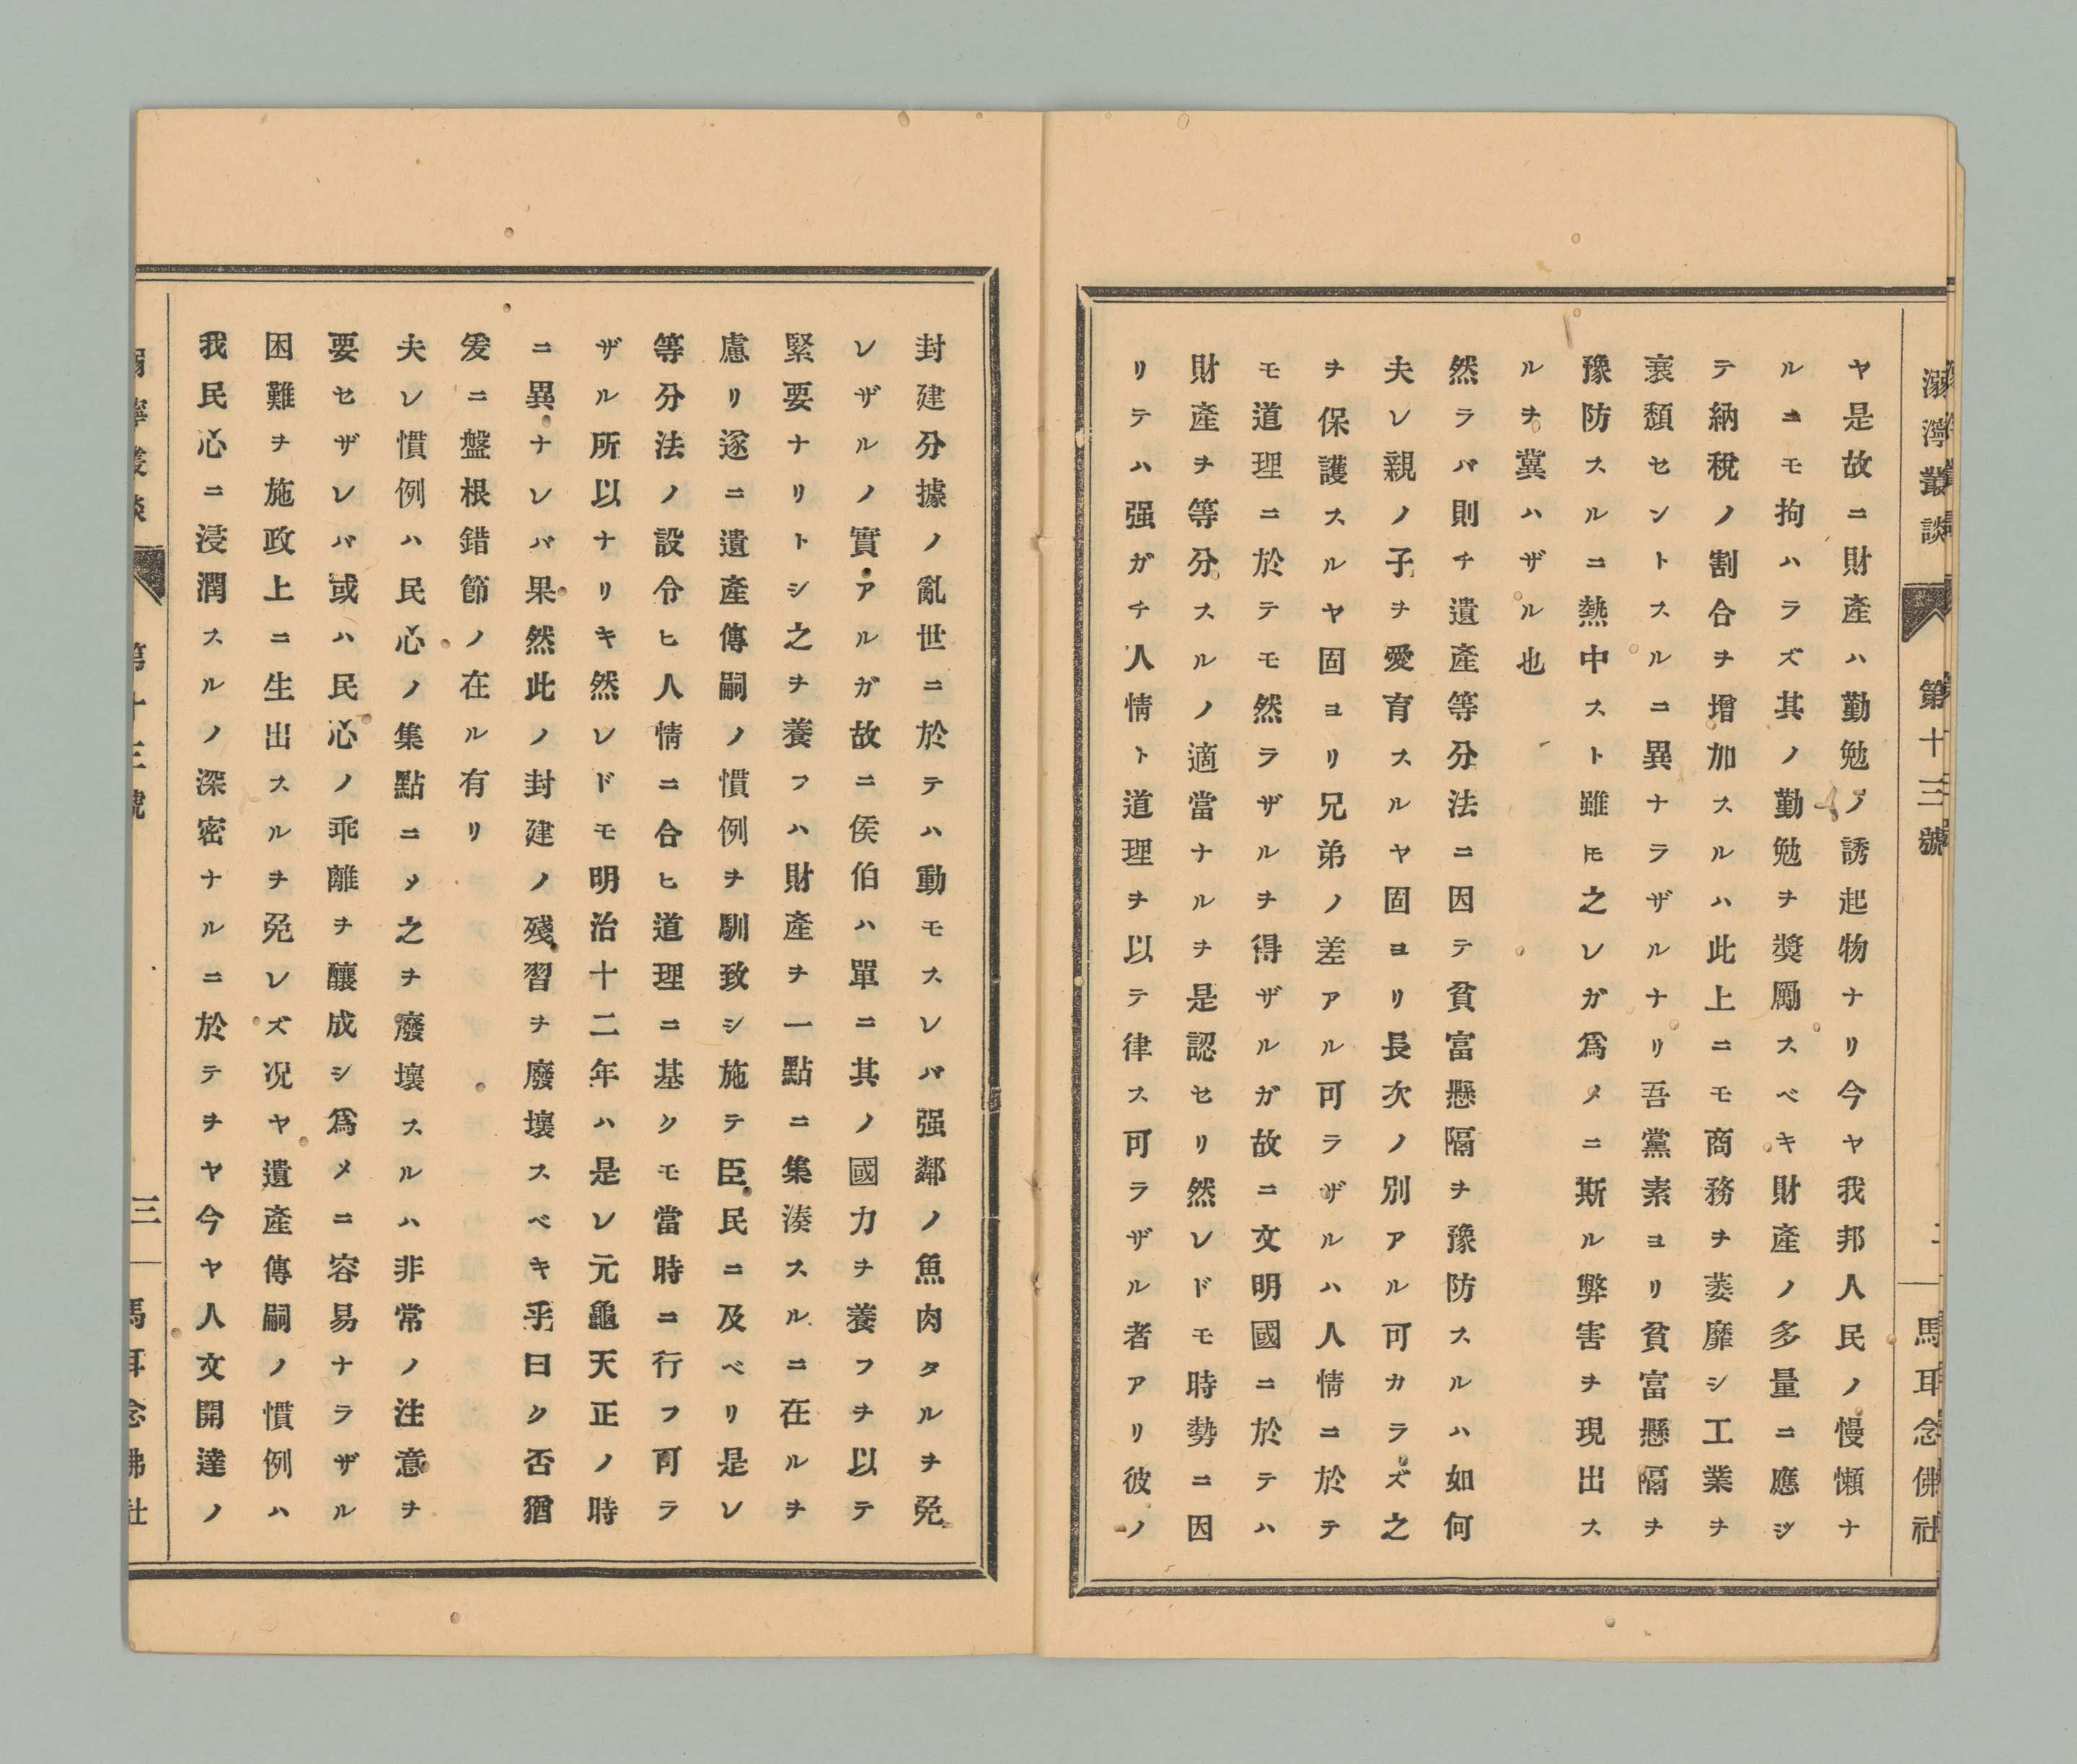 溺濘叢談 第十三號 二 馬耳念佛社
ヤ是故ニ財産ハ勤勉ノ誘起物ナリ今ヤ我邦人民ノ慢懶ナ
ルニモ拘ハラズ其ノ勤勉ヲ奬勵スベキ財産ノ多量ニ應ジ
テ納税ノ割合ヲ増加スルハ此上ニモ商務ヲ萎靡シ工業ヲ
衰頽セントスルニ異ナラザルナリ吾黨素ヨリ貧富懸隔ヲ
豫防スルニ熱中スト雖𪜈之レガ爲メニ斯ル弊害ヲ現出ス
ルヲ冀ハザル也
然ラバ則チ遺産等分法ニ因テ貧富懸隔ヲ豫防スルハ如何
夫レ親ノ子ヲ愛育スルヤ固ヨリ長次ノ別アル可カラズ之
ヲ保護スルヤ固ヨリ兄弟ノ差アル可ラザルハ人情ニ於テ
モ道理ニ於テモ然ラザルヲ得ザルガ故ニ文明國ニ於テハ
財産ヲ等分スルノ適當ナルヲ是認セリ然レドモ時勢ニ因
リテハ强ガチ人情ト道理ヲ以テ律ス可ラザル者アリ彼ノ
封建分據ノ亂世ニ於テハ動モスレバ强鄰ノ魚肉タルヲ免
レザルノ實アルガ故ニ侯伯ハ單ニ其ノ國力ヲ養フヲ以テ
緊要ナリトシ之ヲ養フハ財産ヲ一點ニ集湊スルニ在ルヲ
慮リ遂ニ遺産傳嗣ノ慣例ヲ馴致シ施テ臣民ニ及ベリ是レ
等分法ノ設令ヒ人情ニ合ヒ道理ニ基クモ當時ニ行フ可ラ
ザル所以ナリキ然レドモ明治十二年ハ是レ元龜天正ノ時
ニ異ナレバ果然此ノ封建ノ殘習ヲ廢壞スベキ乎曰ク否猶
爰ニ盤根錯節ノ在ル有リ
夫レ慣例ハ民心ノ集點ニメ之ヲ廢壞スルハ非常ノ注意ヲ
要セザレバ或ハ民心ノ乖離ヲ釀成シ爲メニ容易ナラザル
困難ヲ施政上ニ生出スルヲ免レズ况ヤ遺産傳嗣ノ慣例ハ
我民心ニ浸潤スルノ深密ナルニ於テヲヤ今ヤ人文開達ノ
溺濘叢談 第十三號 三 馬耳念佛社